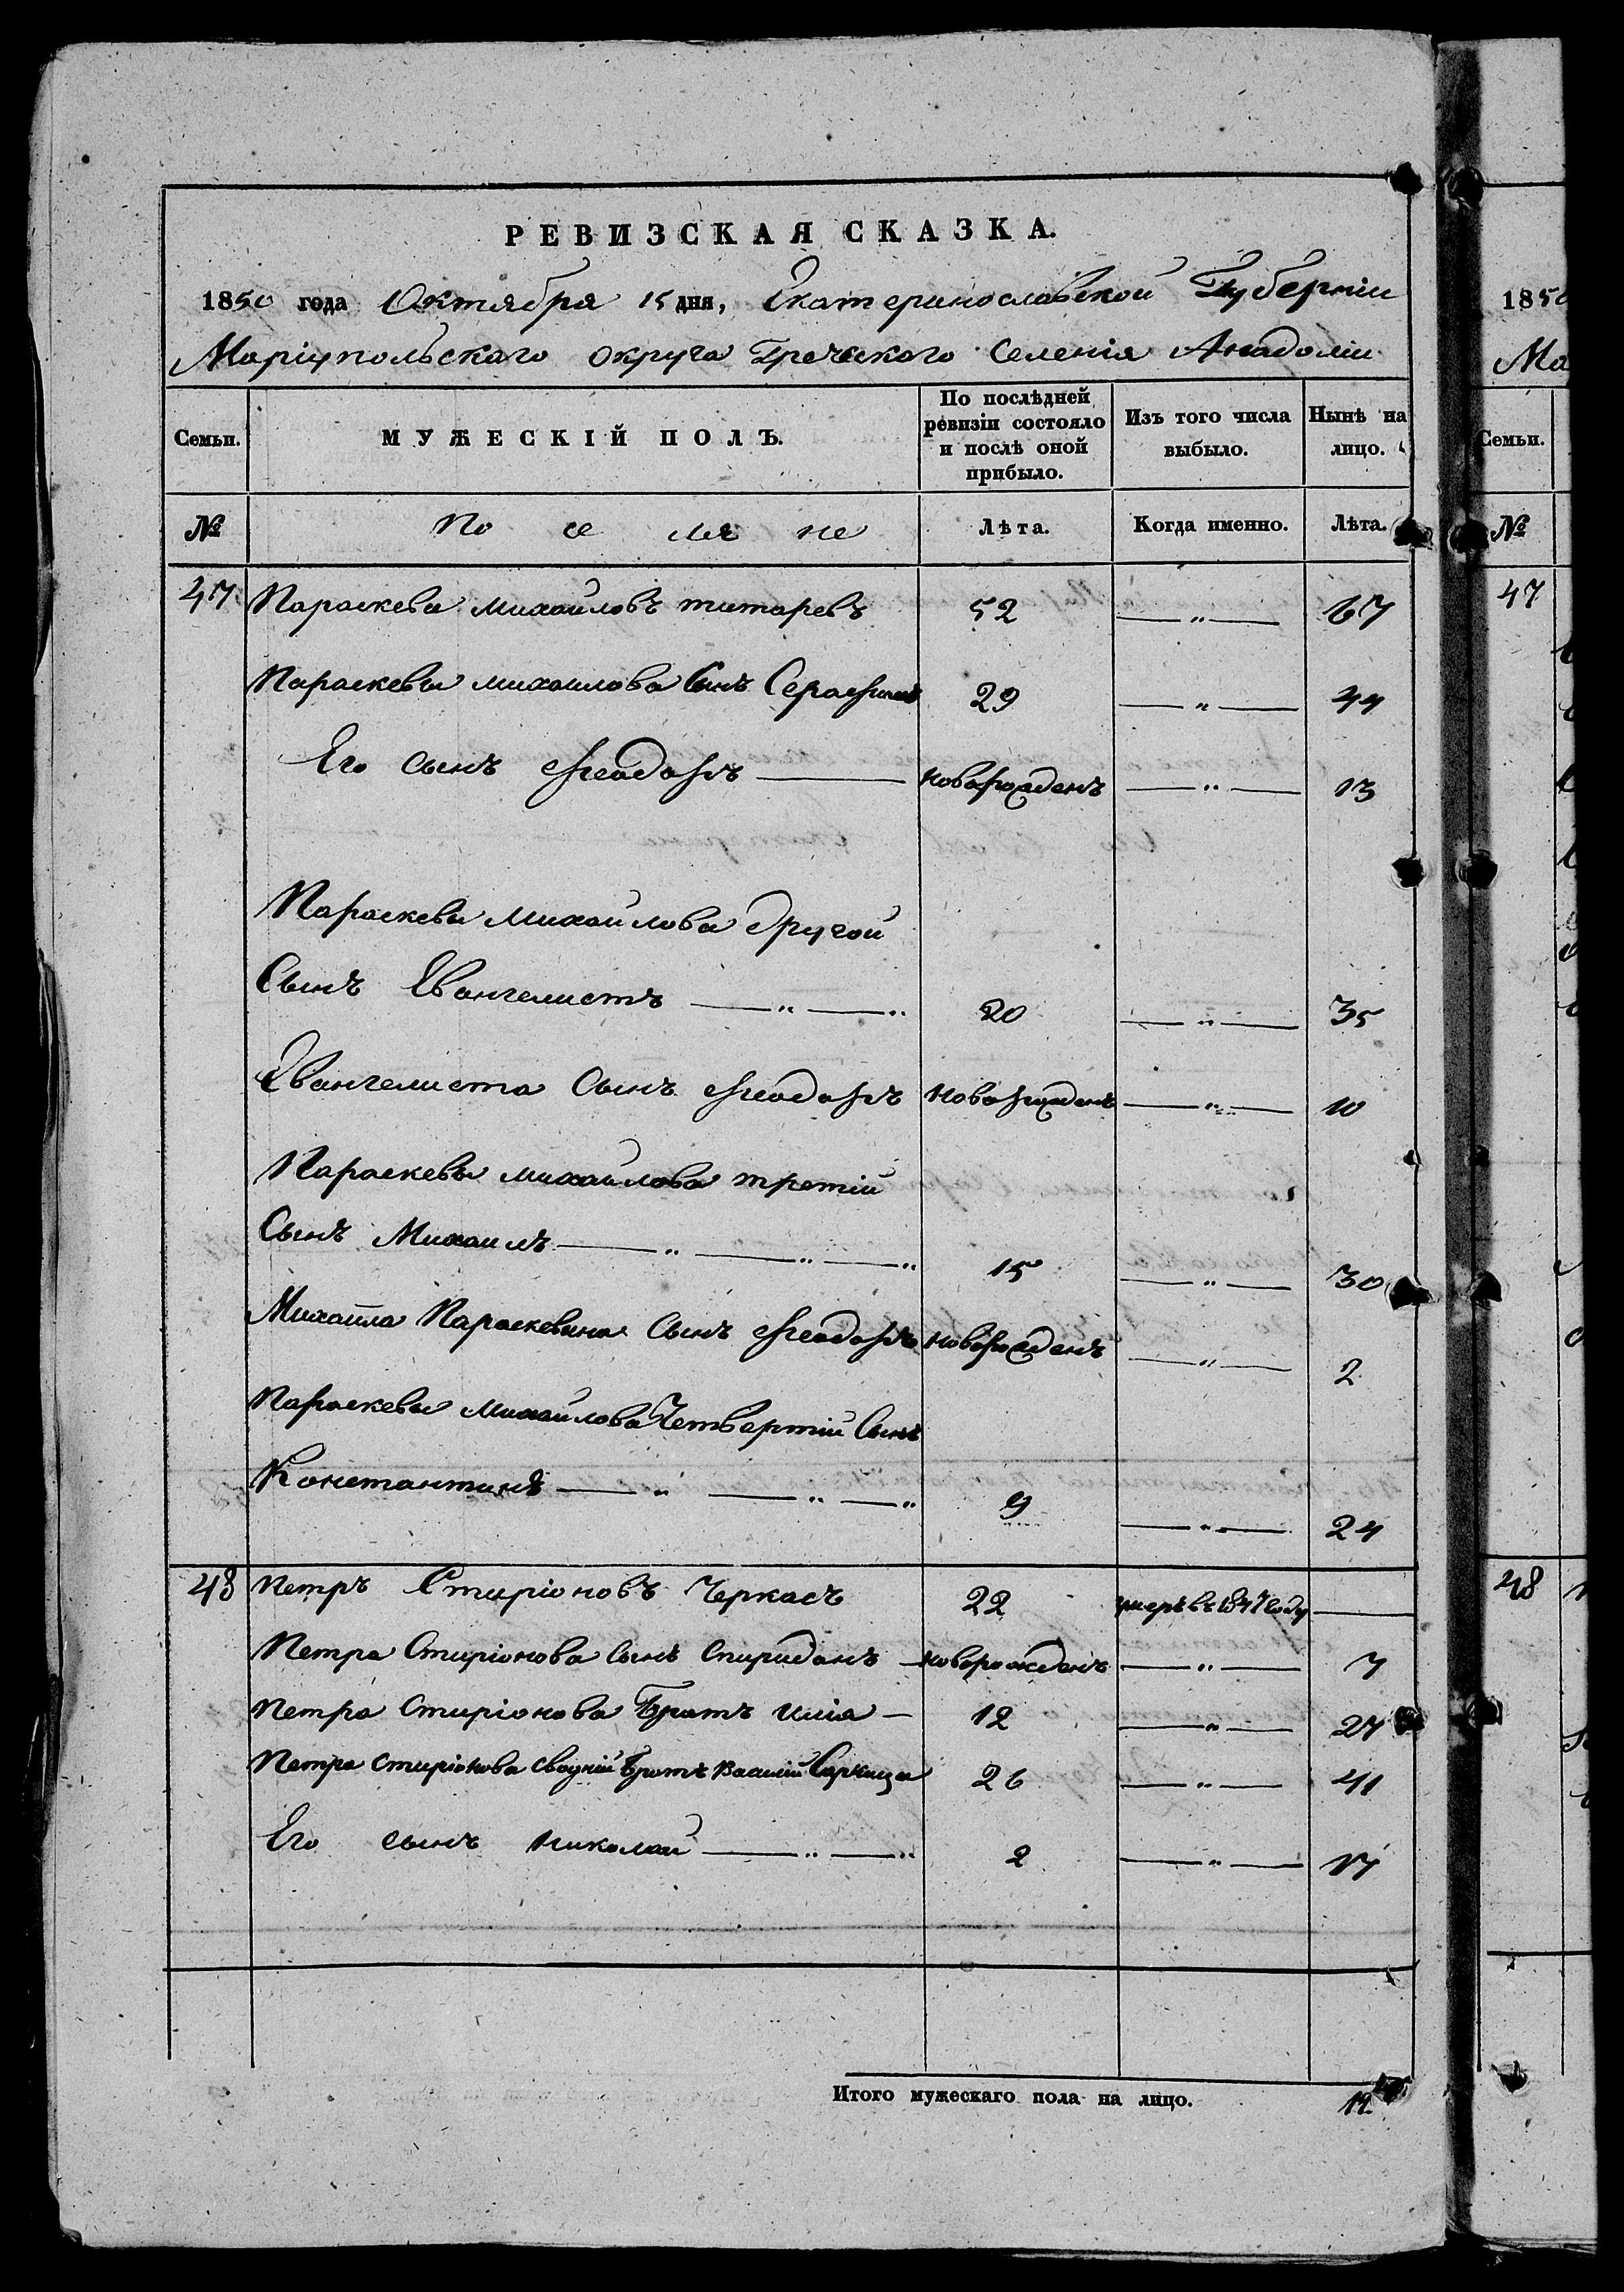 РЕВИЗСКАЯ СКАЗКА.
1850 года Октября 15 дня, Екатеринославской Губерніи
Маріупольскаго округа Греческаго Селенія Анадоліи
Семьи. МУЖЕСКІЙ ПОЛЪ. По послѣдней ревизіи состояло и послѣ оной прибыло. Изъ того числа выбыло. Нынѣ на лицо.
№ Поселяне Лѣта. Когда именно. Лѣта.
47 Параскева михайловъ титаревъ 52 — " — 67
Параскевы михайлова Сынъ Серафимъ 29 — " — 44
Его сынъ Феодоръ — новорожденъ — " — 13
Параскевы Михайлова другой
Сынъ Евангелистъ — " — " 20 — " — 35
Евангелиста Сынъ Феодоръ новорожденъ — " — 10
Параскевы михайлова третій
Сынъ Михаилъ — " — " — " 15 — " — 30
Михаила Параскевина Сынъ Феодоръ новорожденъ — " — 2
Параскевы Михайлова Четвертій Сынъ
Константинъ — " — " — " 9 — " — 24
48 Петръ Стиріоновъ Черкасъ 22 умеръ въ 1847 году —
Петра Стиріонова сынъ Спиридонъ — новорожденъ — " — 7
Петра Стиріонова Братъ илія — 12 — " — 27
Петра Стиріонова сводній Братъ Василій 26 — " — 41
Его сынъ Николай — " — " 2 — " — 17
Итого мужескаго пола на лицо. 12
1850
Ма
Семьи.
№
47
48